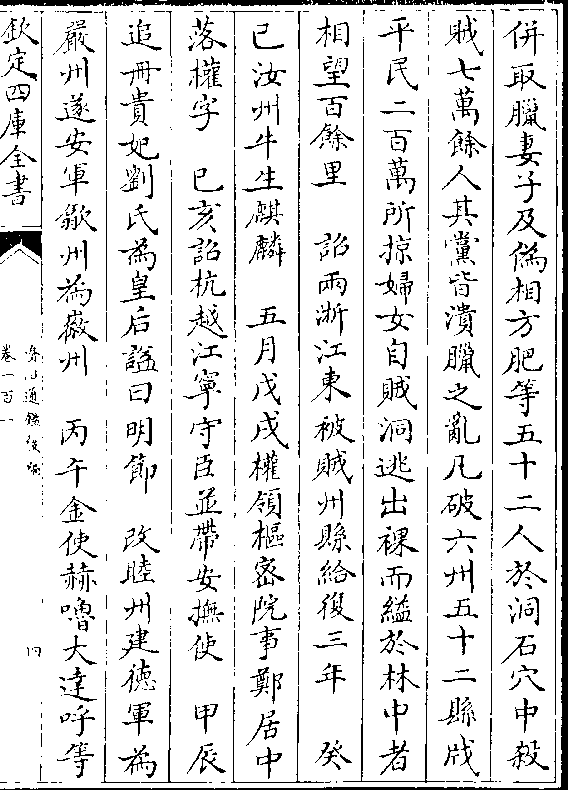 併取臘妻子及偽相方肥等五十二人於洞石穴中殺
賊七萬餘人其黨皆潰臘之亂凡破六州五十二縣戕
平民二百萬所掠婦女自賊洞逃出裸而縊於林中者
相望百餘里　詔兩浙江東被賊州縣給復三年　癸
巳汝州牛生麒麟　五月戊戌權領樞密院事鄭居中
落權字　己亥詔杭越江寧守臣並帶安撫使　甲辰
追冊貴妃劉氏為皇后諡曰明節　改睦州建德軍為
嚴州遂安軍歙州為徽州　丙午金使赫嚕大達呼等
欽定四庫全書
資治通鑑後編
卷一百一
四